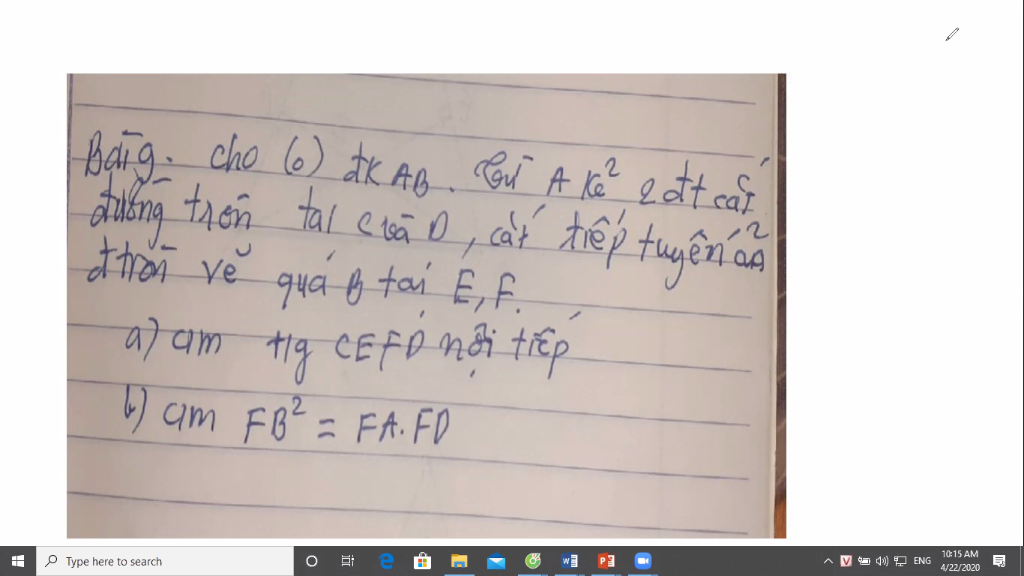 Bài 9. cho (O) đk AB. Từ A kẻ 2 đt cắt
đường tròn tại C và D, cắt tiếp tuyến của
đtròn vẽ qua B tại E, F.
a) cm tig CEFD nội tiếp
b) cm FB² = FA.FD
Type here to search
ENG
10:15 AM
4/22/2020